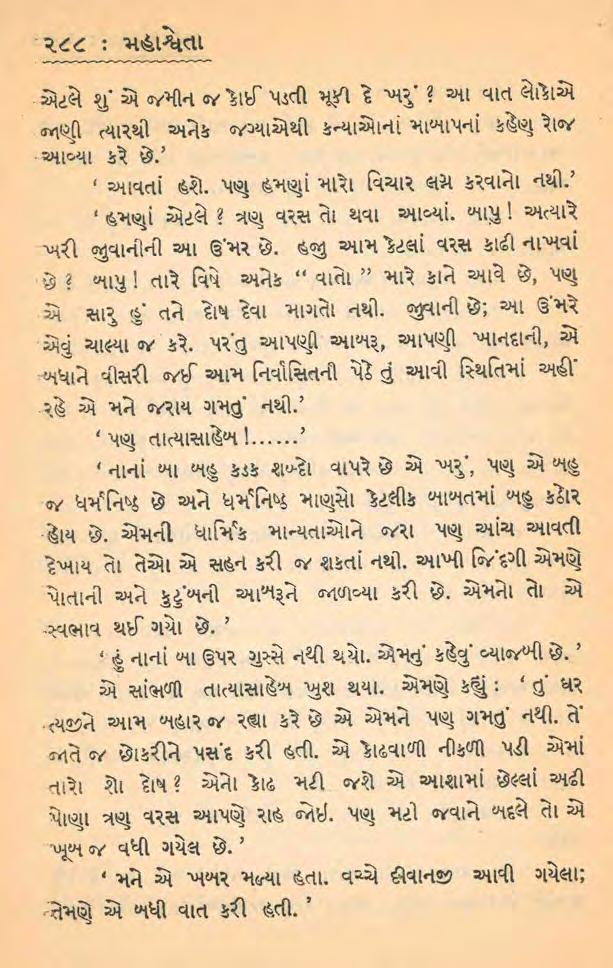 ૨૮૮ : મહાશ્વેતા
એટલે શું એ જમીન જ કોઈ પડતી મૂકી દે ખરું ? આ વાત લોકોએ
જાણી ત્યારથી અનેક જગ્યાએથી કન્યાઓનાં માબાપનાં કહેણ રોજ
આવ્યા કરે છે.’
‘ આવતાં હશે. પણ હમણાં મારો વિચાર લગ્ન કરવાનો નથી.’
‘ હમણાં એટલે ? ત્રણ વરસ તો થવા આવ્યાં. બાપુ ! અત્યારે
ખરી જુવાનીની આ ઉંમર છે. હજુ આમ કેટલાં વરસ કાઢી નાખવાં
છે ? બાપુ ! તારે વિષે અનેક “ વાતો ” મારે કાને આવે છે, પણ
એ સારુ હું તને દોષ દેવા માગતો નથી. જુવાની છે; આ ઉંમરે
એવું ચાલ્યા જ કરે. પરંતુ આપણી આબરૂ, આપણી ખાનદાની, એ
બધાને વીસરી જઈ આમ નિર્વાસિતની પેઠે તું આવી સ્થિતિમાં અહીં
રહે એ મને જરાય ગમતું નથી.’
‘ પણ તાત્યાસાહેબ !......’
‘ નાનાં બા બહુ કડક શબ્દો વાપરે છે એ ખરું, પણ એ બહુ
જ ધર્મનિષ્ઠ છે અને ધર્મનિષ્ઠ માણસો કેટલીક બાબતમાં બહુ કઠોર
હોય છે. એમની ધાર્મિક માન્યતાઓને જરા પણ આંચ આવતી
દેખાય તો તેઓ એ સહન કરી જ શકતાં નથી. આખી જિંદગી એમણે
પોતાની અને કુટુંબની આબરૂને જાળવ્યા કરી છે. એમનો તો એ
સ્વભાવ થઈ ગયો છે. ’
‘ હું નાનાં બા ઉપર ગુસ્સે નથી થયો. એમનું કહેવું વ્યાજબી છે. ’
એ સાંભળી તાત્યાસાહેબ ખુશ થયા. એમણે કહ્યું : ‘ તું ઘર
ત્યજીને આમ બહાર જ રહ્યા કરે છે એ એમને પણ ગમતું નથી. તેં
જાતે જ છોકરીને પસંદ કરી હતી. એ કોઢવાળી નીકળી પડી એમાં
તારો શો દોષ ? એનો કોઢ મટી જશે એ આશામાં છેલ્લાં અઢી
પોણા ત્રણ વરસ આપણે રાહ જોઈ. પણ મટી જવાને બદલે તો એ
ખૂબ જ વધી ગયેલ છે. ’
‘ મને એ ખબર મળ્યા હતા. વચ્ચે દીવાનજી આવી ગયેલા;
તેમણે એ બધી વાત કરી હતી. ’